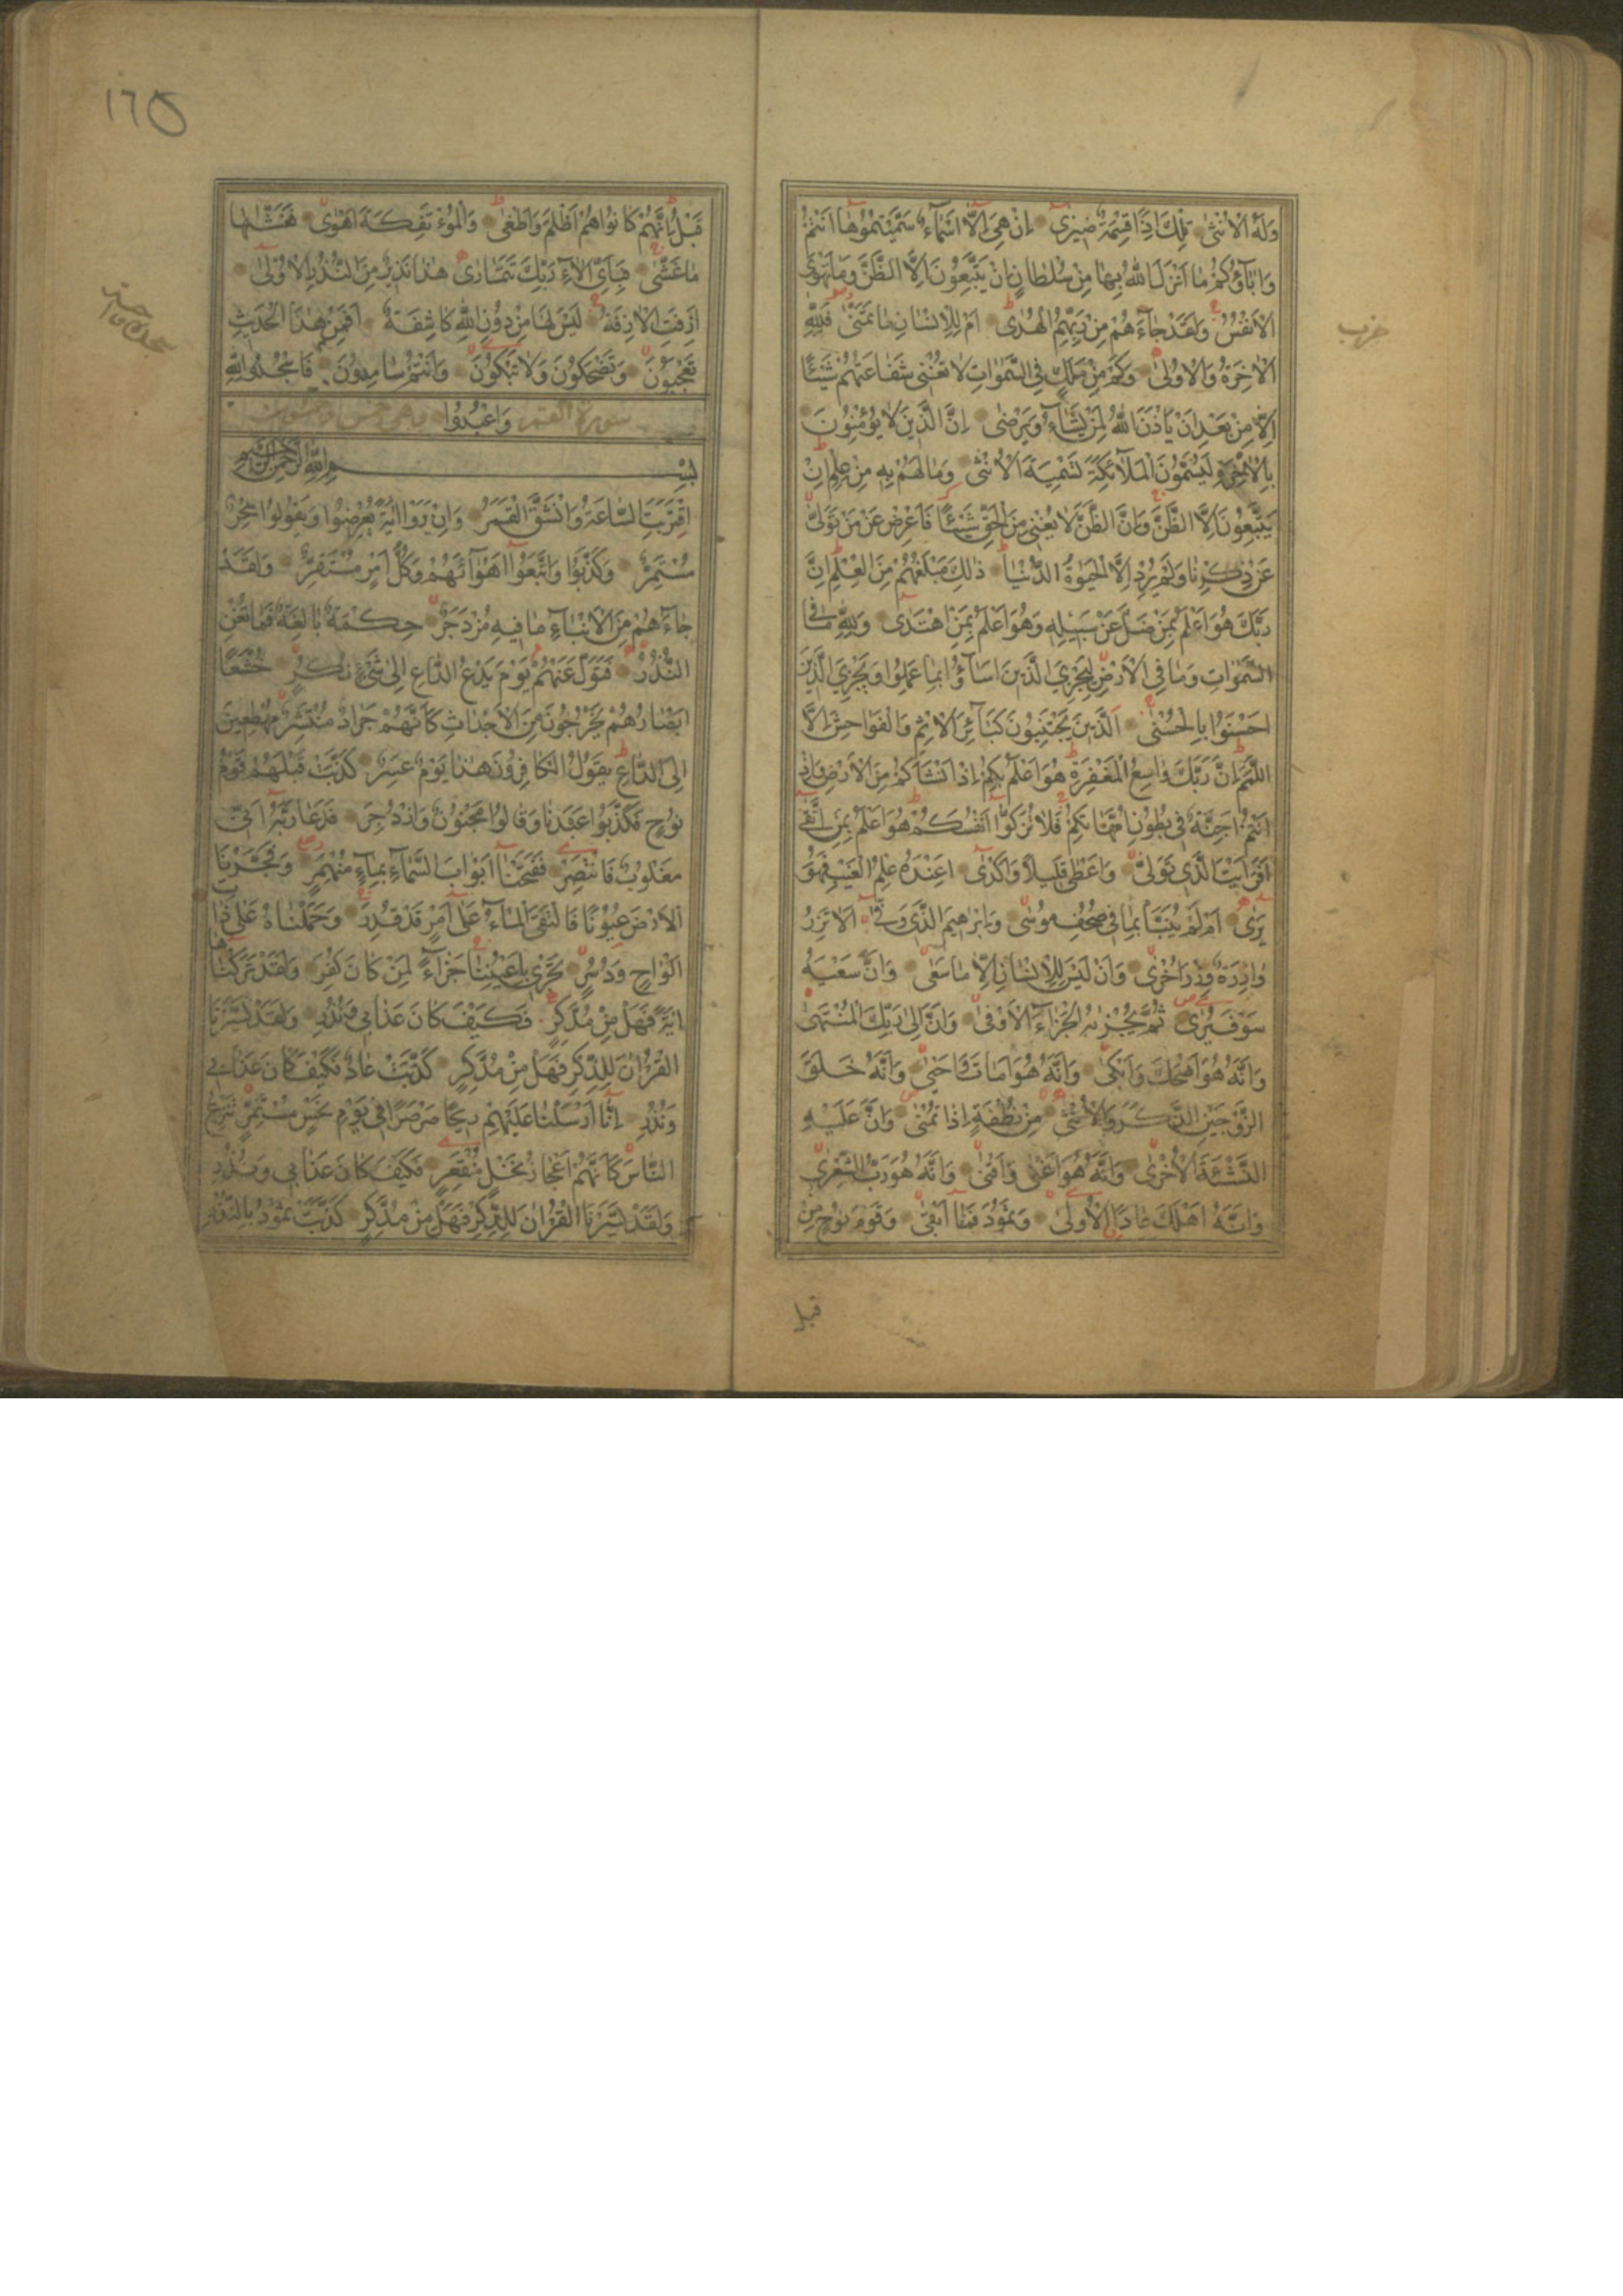 وَلَهُ الْاُنْثٰى تِلْكَ اِذًا قِسْمَةٌ ضِيزٰى اِنْ هِيَ اِلَّا اَسْمَاءٌ سَمَّيْتُمُوهَا اَنْتُمْ
وَاٰبَاؤُكُمْ مَا اَنْزَلَ اللّٰهُ بِهَا مِنْ سُلْطَانٍ اِنْ يَتَّبِعُونَ اِلَّا الظَّنَّ وَمَا تَهْوَى
الْاَنْفُسُ وَلَقَدْ جَاءَهُمْ مِنْ رَبِّهِمُ الْهُدٰى اَمْ لِلْاِنْسَانِ مَا تَمَنّٰى فَلِلّٰهِ
الْاٰخِرَةُ وَالْاُولٰى وَكَمْ مِنْ مَلَكٍ فِي السَّمٰوَاتِ لَا تُغْنِي شَفَاعَتُهُمْ شَيْئًا
اِلَّا مِنْ بَعْدِ اَنْ يَأْذَنَ اللّٰهُ لِمَنْ يَشَاءُ وَيَرْضٰى اِنَّ الَّذِينَ لَا يُؤْمِنُونَ
بِالْاٰخِرَةِ لَيُسَمُّونَ الْمَلٰٓئِكَةَ تَسْمِيَةَ الْاُنْثٰى وَمَا لَهُمْ بِهِ مِنْ عِلْمٍ اِنْ
يَتَّبِعُونَ اِلَّا الظَّنَّ وَاِنَّ الظَّنَّ لَا يُغْنِي مِنَ الْحَقِّ شَيْئًا فَاَعْرِضْ عَنْ مَنْ تَوَلّٰى
عَنْ ذِكْرِنَا وَلَمْ يُرِدْ اِلَّا الْحَيٰوةَ الدُّنْيَا ذٰلِكَ مَبْلَغُهُمْ مِنَ الْعِلْمِ اِنَّ
رَبَّكَ هُوَ اَعْلَمُ بِمَنْ ضَلَّ عَنْ سَبِيلِهِ وَهُوَ اَعْلَمُ بِمَنِ اهْتَدٰى وَلِلّٰهِ مَا فِي
السَّمٰوَاتِ وَمَا فِي الْاَرْضِ لِيَجْزِيَ الَّذِينَ اَسَاؤُا بِمَا عَمِلُوا وَيَجْزِيَ الَّذِينَ
اَحْسَنُوا بِالْحُسْنٰى اَلَّذِينَ يَجْتَنِبُونَ كَبَائِرَ الْاِثْمِ وَالْفَوَاحِشَ اِلَّا
اللَّمَمَ اِنَّ رَبَّكَ وَاسِعُ الْمَغْفِرَةِ هُوَ اَعْلَمُ بِكُمْ اِذْ اَنْشَاَكُمْ مِنَ الْاَرْضِ وَاِذْ
اَنْتُمْ اَجِنَّةٌ فِي بُطُونِ اُمَّهَاتِكُمْ فَلَا تُزَكُّوا اَنْفُسَكُمْ هُوَ اَعْلَمُ بِمَنِ اتَّقٰى
اَفَرَاَيْتَ الَّذِي تَوَلّٰى وَاَعْطٰى قَلِيلًا وَاَكْدٰى اَعِنْدَهُ عِلْمُ الْغَيْبِ فَهُوَ
يَرٰى اَمْ لَمْ يُنَبَّأْ بِمَا فِي صُحُفِ مُوسٰى وَاِبْرٰهِيمَ الَّذِي وَفّٰى اَلَّا تَزِرُ
وَازِرَةٌ وِزْرَ اُخْرٰى وَاَنْ لَيْسَ لِلْاِنْسَانِ اِلَّا مَا سَعٰى وَاَنَّ سَعْيَهُ
سَوْفَ يُرٰى ثُمَّ يُجْزٰيهُ الْجَزَاءَ الْاَوْفٰى وَاَنَّ اِلٰى رَبِّكَ الْمُنْتَهٰى
وَاَنَّهُ هُوَ اَضْحَكَ وَاَبْكٰى وَاَنَّهُ هُوَ اَمَاتَ وَاَحْيٰى وَاَنَّهُ خَلَقَ
الزَّوْجَيْنِ الذَّكَرَ وَالْاُنْثٰى مِنْ نُطْفَةٍ اِذَا تُمْنٰى وَاَنَّ عَلَيْهِ
النَّشْئَةَ الْاُخْرٰى وَاَنَّهُ هُوَ اَغْنٰى وَاَقْنٰى وَاَنَّهُ هُوَ رَبُّ الشِّعْرٰى
وَاَنَّهُ اَهْلَكَ عَادًا الْاُولٰى وَثَمُودَ فَمَا اَبْقٰى وَقَوْمَ نُوحٍ مِنْ
قبل
حزب
١٦٥
قَبْلُ اِنَّهُمْ كَانُوا هُمْ اَظْلَمَ وَاَطْغٰى وَالْمُؤْتَفِكَةَ اَهْوٰى فَغَشّٰيهَا
مَا غَشّٰى فَبِاَيِّ اٰلَاءِ رَبِّكَ تَتَمَارٰى هٰذَا نَذِيرٌ مِنَ النُّذُرِ الْاُولٰى
اَزِفَتِ الْاٰزِفَةُ لَيْسَ لَهَا مِنْ دُونِ اللّٰهِ كَاشِفَةٌ اَفَمِنْ هٰذَا الْحَدِيثِ
تَعْجَبُونَ وَتَضْحَكُونَ وَلَا تَبْكُونَ وَاَنْتُمْ سَامِدُونَ فَاسْجُدُوا لِلّٰهِ
سورة القمر وَاعْبُدُوا وهي خمس وخمسون
بِسْمِ اللّٰهِ الرَّحْمٰنِ الرَّحِيمِ
اِقْتَرَبَتِ السَّاعَةُ وَانْشَقَّ الْقَمَرُ وَاِنْ يَرَوْا اٰيَةً يُعْرِضُوا وَيَقُولُوا سِحْرٌ
مُسْتَمِرٌّ وَكَذَّبُوا وَاتَّبَعُوا اَهْوَاءَهُمْ وَكُلُّ اَمْرٍ مُسْتَقِرٌّ وَلَقَدْ
جَاءَهُمْ مِنَ الْاَنْبَاءِ مَا فِيهِ مُزْدَجَرٌ حِكْمَةٌ بَالِغَةٌ فَمَا تُغْنِ
النُّذُرُ فَتَوَلَّ عَنْهُمْ يَوْمَ يَدْعُ الدَّاعِ اِلٰى شَيْءٍ نُكُرٍ خُشَّعًا
اَبْصَارُهُمْ يَخْرُجُونَ مِنَ الْاَجْدَاثِ كَاَنَّهُمْ جَرَادٌ مُنْتَشِرٌ مُهْطِعِينَ
اِلَى الدَّاعِ يَقُولُ الْكَافِرُونَ هٰذَا يَوْمٌ عَسِرٌ كَذَّبَتْ قَبْلَهُمْ قَوْمُ
نُوحٍ فَكَذَّبُوا عَبْدَنَا وَقَالُوا مَجْنُونٌ وَازْدُجِرَ فَدَعَا رَبَّهُ اَنِّي
مَغْلُوبٌ فَانْتَصِرْ فَفَتَحْنَا اَبْوَابَ السَّمَاءِ بِمَاءٍ مُنْهَمِرٍ وَفَجَّرْنَا
الْاَرْضَ عُيُونًا فَالْتَقَى الْمَاءُ عَلٰى اَمْرٍ قَدْ قُدِرَ وَحَمَلْنَاهُ عَلٰى ذَاتِ
اَلْوَاحٍ وَدُسُرٍ تَجْرِي بِاَعْيُنِنَا جَزَاءً لِمَنْ كَانَ كُفِرَ وَلَقَدْ تَرَكْنَاهَا
اٰيَةً فَهَلْ مِنْ مُدَّكِرٍ فَكَيْفَ كَانَ عَذَابِي وَنُذُرِ وَلَقَدْ يَسَّرْنَا
الْقُرْاٰنَ لِلذِّكْرِ فَهَلْ مِنْ مُدَّكِرٍ كَذَّبَتْ عَادٌ فَكَيْفَ كَانَ عَذَابِي
وَنُذُرِ اِنَّا اَرْسَلْنَا عَلَيْهِمْ رِيحًا صَرْصَرًا فِي يَوْمِ نَحْسٍ مُسْتَمِرٍّ تَنْزِعُ
النَّاسَ كَاَنَّهُمْ اَعْجَازُ نَخْلٍ مُنْقَعِرٍ فَكَيْفَ كَانَ عَذَابِي وَنُذُرِ
وَلَقَدْ يَسَّرْنَا الْقُرْاٰنَ لِلذِّكْرِ فَهَلْ مِنْ مُدَّكِرٍ كَذَّبَتْ ثَمُودُ بِالنُّذُرِ